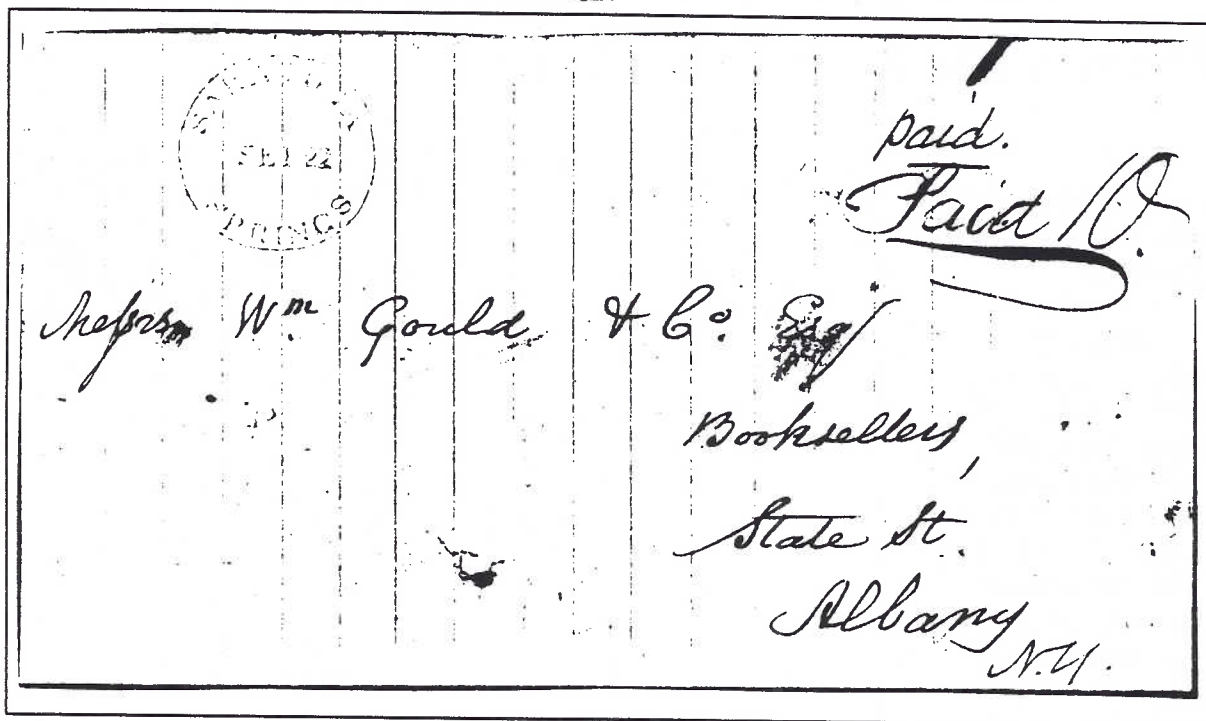 SEP 22
SPRINGS
paid.
Paid 10.
Messrs Wm Gould & Co. Esq
Booksellers,
State St.
Albany
N.Y.